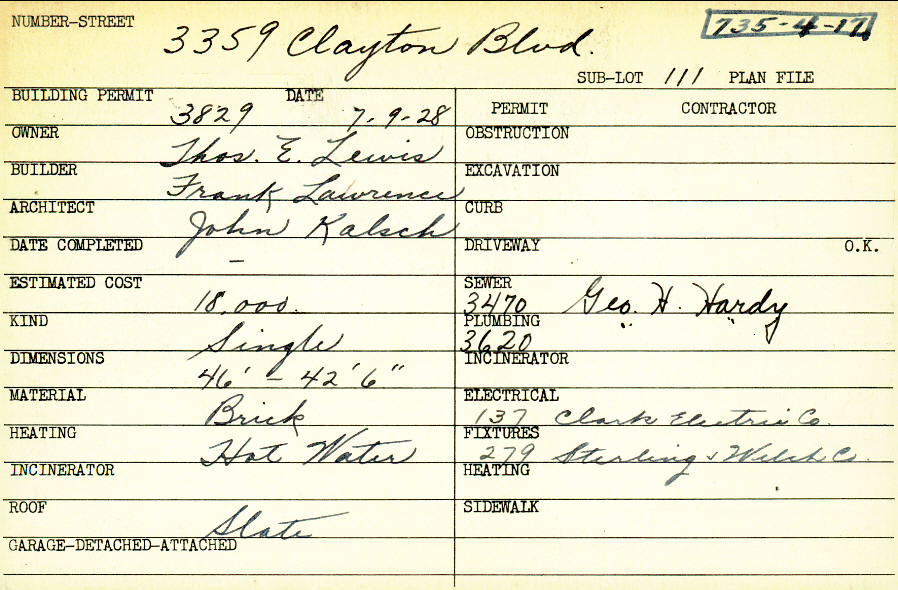 NUMBER-STREET 3359 Clayton Blvd. 735-4-17
SUB-LOT 111 PLAN FILE
BUILDING PERMIT 3829 DATE 7-9-28
PERMIT CONTRACTOR
OWNER Thos. E. Lewis
OBSTRUCTION
BUILDER Frank Lawrence
EXCAVATION
ARCHITECT John Kalsch
CURB
DATE COMPLETED –
DRIVEWAY O.K.
ESTIMATED COST 18,000.
SEWER 3470 Geo. H. Hardy
KIND Single
PLUMBING 3620 " "
DIMENSIONS 46' - 42'6"
INCINERATOR
MATERIAL Brick
ELECTRICAL 137 Clark Electric Co.
HEATING Hot Water
FIXTURES 279 Sterling & Welch Co.
INCINERATOR
HEATING
ROOF Slate
SIDEWALK
GARAGE-DETACHED-ATTACHED